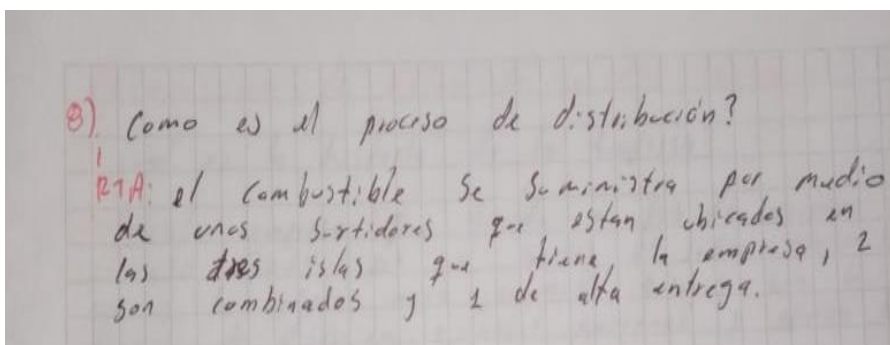 8) Como es el proceso de distribución?
RTA: el combustible se suministra por medio
de unos surtidores que estan ubicados en
las tres islas que tiene la empresa, 2
son combinados y 1 de alta entrega.